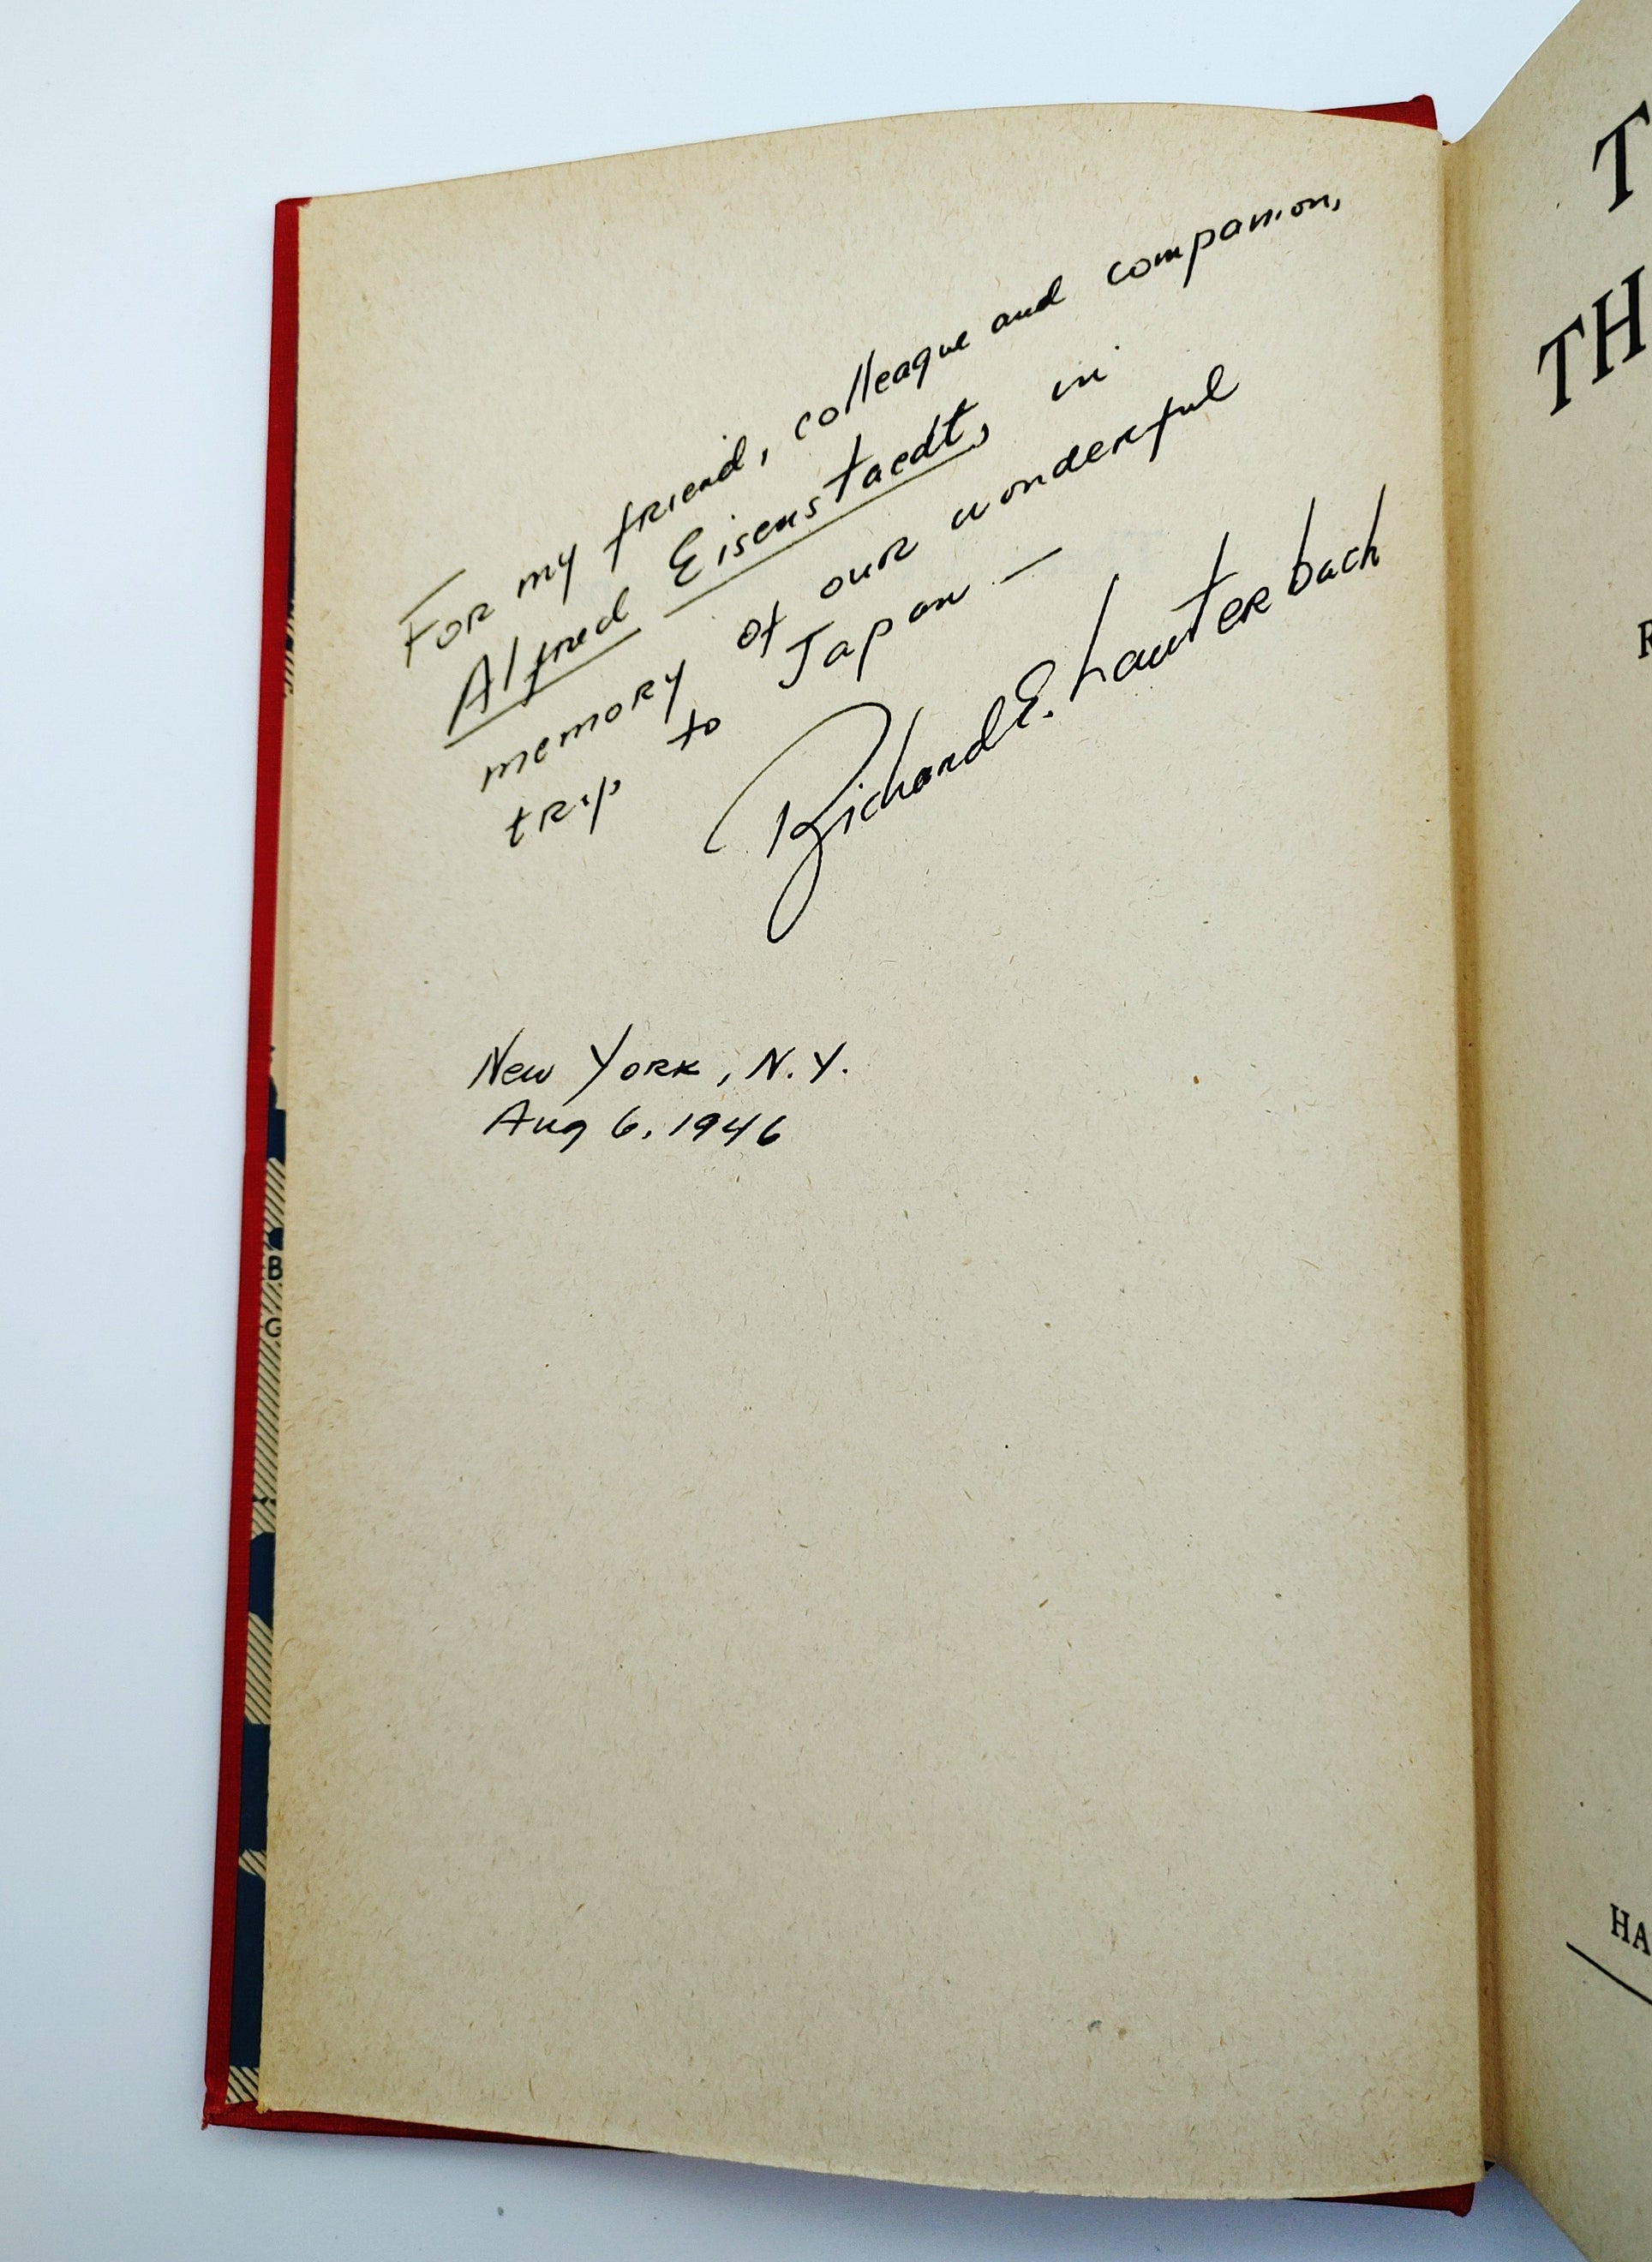 For my friend, colleague and companion,
Alfred Eisenstaedt, in
memory of our wonderful
trip to Japan —
Richard E. Lauterbach
New York, N.Y.
Aug 6, 1946
B
G
T
TH
R
HA